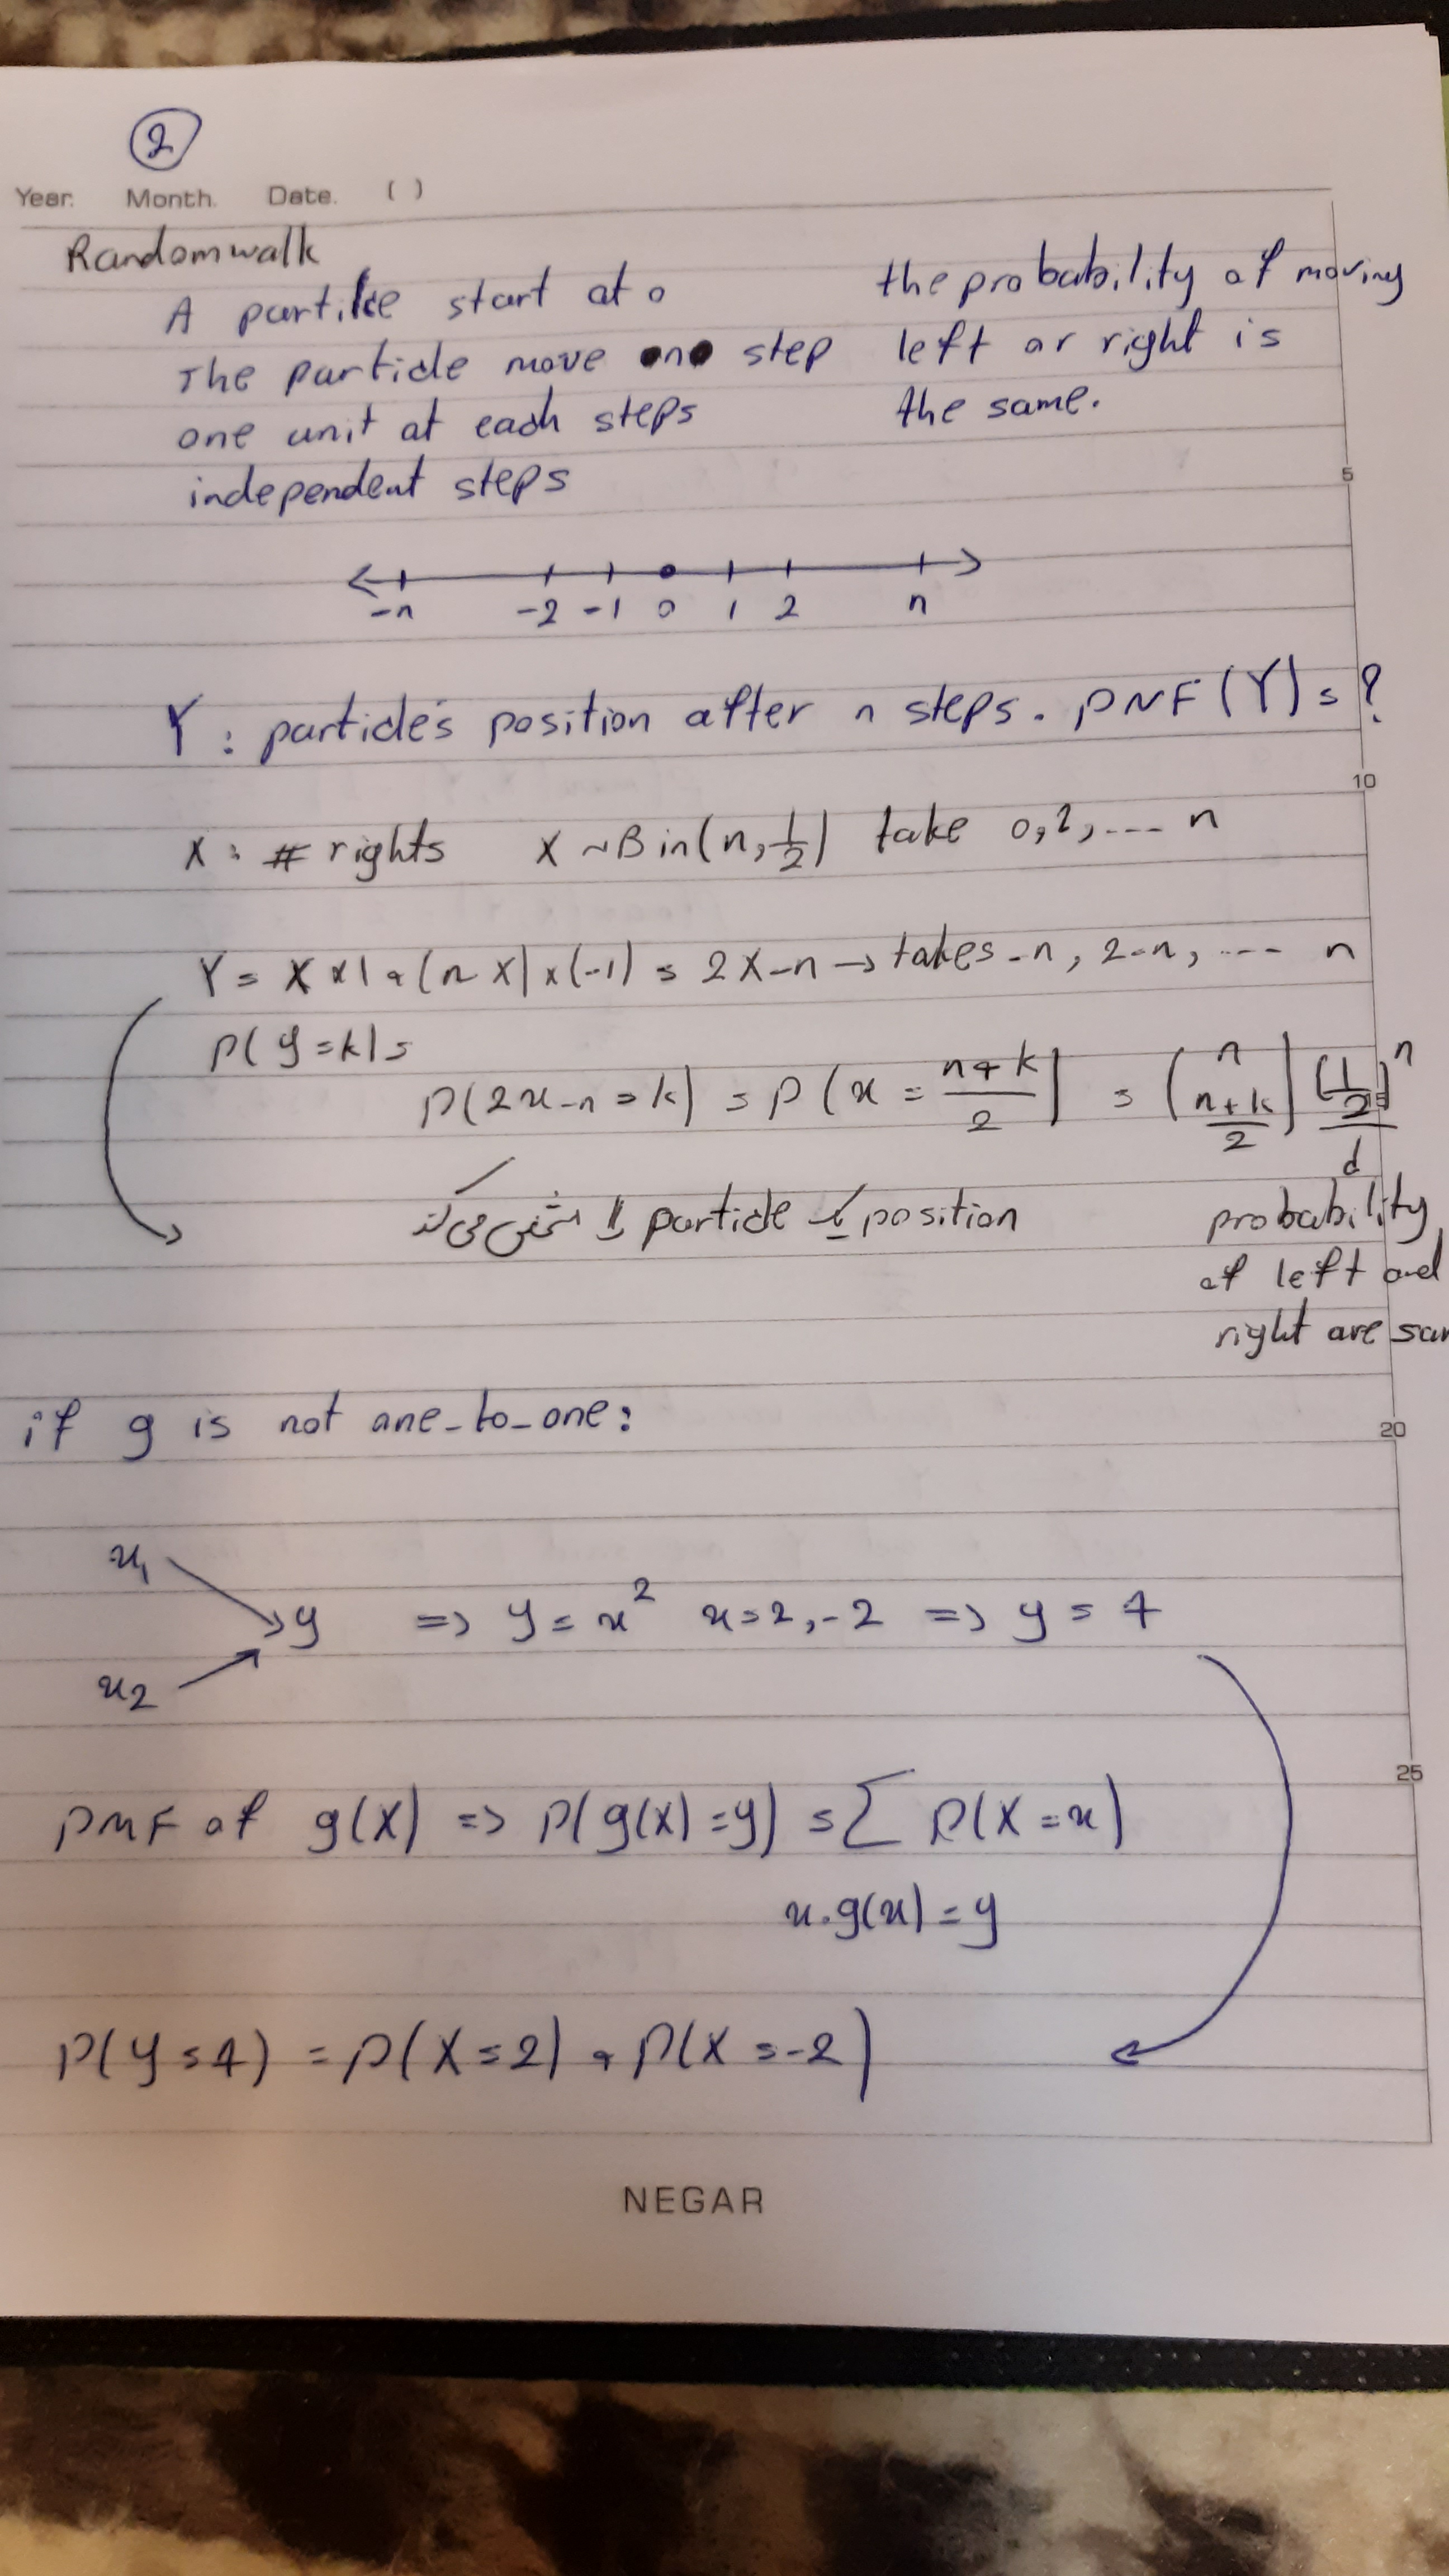 2
Year. Month. Date. ( )
Randomwalk
A partilce start at 0
The particle move one step
one unit at each steps
independent steps
the probability of moving
left or right is
the same.
5
-n -2 -1 0 1 2 n
Y : particle's position after n steps. PMF(Y) = ?
10
X : # rights X ~ Bin(n, 1/2) take 0, 2, ... n
Y = X x 1 + (n X) x (-1) = 2X - n → takes -n, 2-n, ... n
P(y = k) =
P(2x - n = k) = P(x = (n+k)/2) = (n (n+k)/2) (1/2)^n
15
position یک particle را مشخص می‌کند
probability
of left and
right are
if g is not one_to_one:
20
x1
y => y = x^2 x = 2, -2 => y = 4
x2
25
PMF of g(X) => P(g(X) = y) = Σ P(X = x)
x. g(x) = y
P(y = 4) = P(X = 2) + P(X = -2)
NEGAR